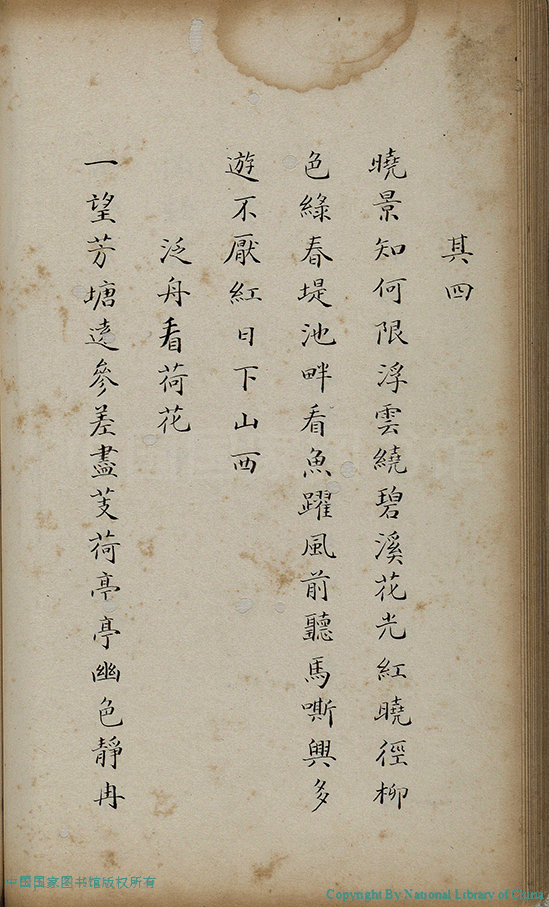 其四
曉景知何限浮雲繞碧溪花光紅曉徑柳
色綠春堤池畔看魚躍風前聽馬嘶興多
遊不厭紅日下山西
泛舟看荷花
一望芳塘遠參差盡芰荷亭亭幽色靜冉
中国国家图书馆版权所有
Copyright By National Library of China